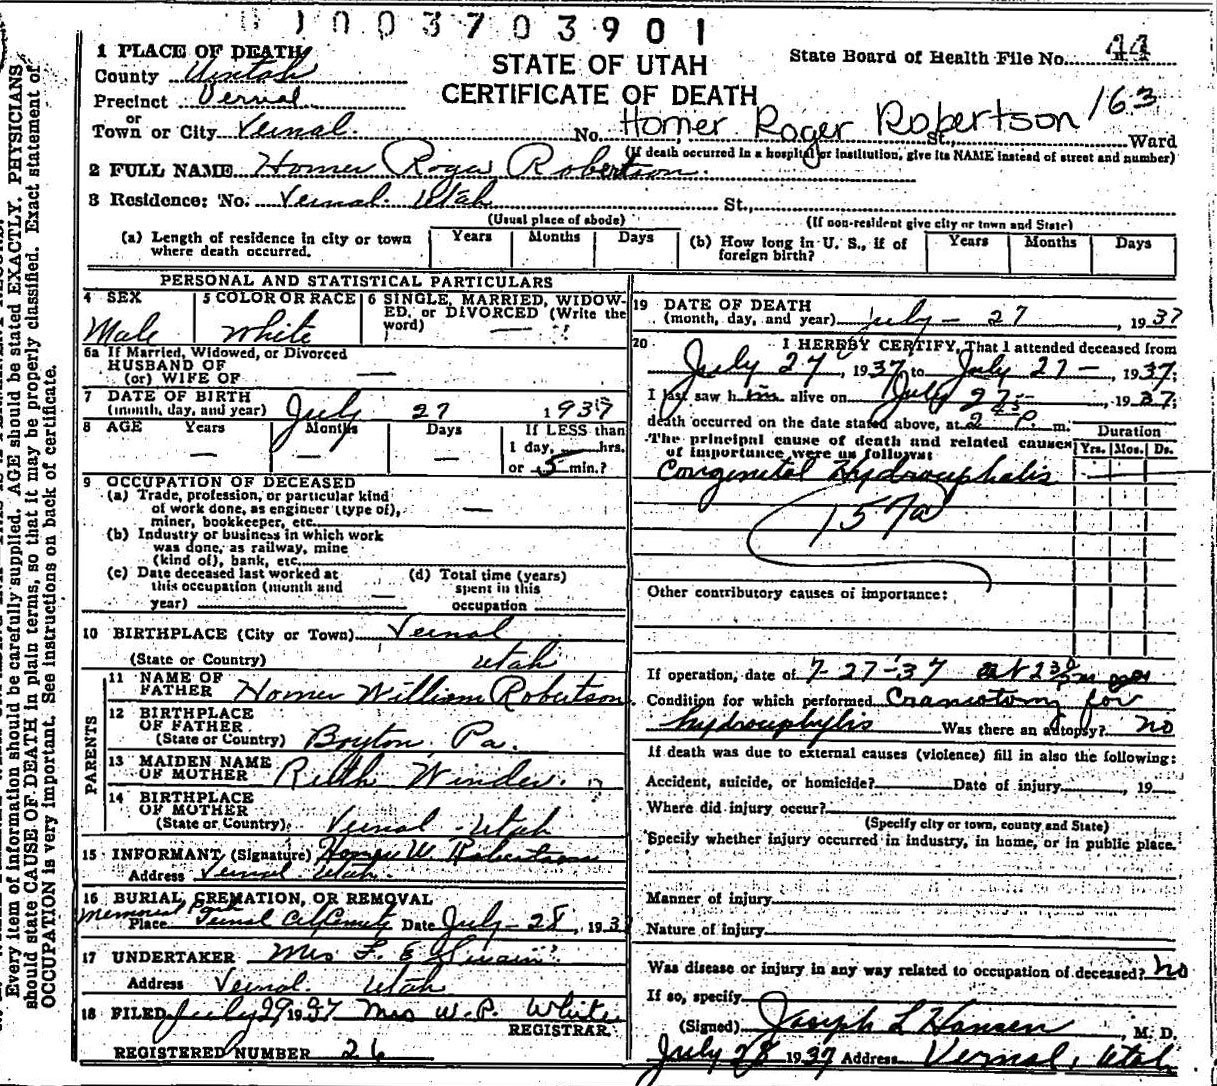 0 1 0 0 3 7 0 3 9 0 1
1 PLACE OF DEATH
County Uintah
Precinct Vernal
or
Town or City Vernal.
STATE OF UTAH
CERTIFICATE OF DEATH
State Board of Health File No. 44
163
No. Homer Roger Robertson St., Ward
(If death occurred in a hospital or institution, give its NAME instead of street and number)
2 FULL NAME Homer Roger Robertson.
3 Residence: No. Vernal. Utah St.,
(Usual place of abode) (If non-resident give city or town and State)
(a) Length of residence in city or town where death occurred. Years Months Days (b) How long in U. S., if of foreign birth? Years Months Days
PERSONAL AND STATISTICAL PARTICULARS
4 SEX Male
5 COLOR OR RACE White
6 SINGLE, MARRIED, WIDOW-
ED, or DIVORCED (Write the
word) —
6a If Married, Widowed, or Divorced
HUSBAND OF
(or) WIFE OF —
7 DATE OF BIRTH
(month, day, and year) July 27 1937
8 AGE Years Months Days If LESS than
— — — 1 day, hrs.
or 5 min.?
9 OCCUPATION OF DECEASED
(a) Trade, profession, or particular kind
of work done, as engineer (type of), —
miner, bookkeeper, etc.
(b) Industry or business in which work
was done, as railway, mine
(kind of), bank, etc.
(c) Date deceased last worked at (d) Total time (years)
this occupation (month and — spent in this
year) occupation
10 BIRTHPLACE (City or Town) Vernal
(State or Country) Utah
PARENTS
11 NAME OF
FATHER Homer William Robertson
12 BIRTHPLACE
OF FATHER
(State or Country) Boyton, Pa.
13 MAIDEN NAME
OF MOTHER Ruth Winder.
14 BIRTHPLACE
OF MOTHER
(State or Country) Vernal - Utah
15 INFORMANT (Signature) Homer W. Robertson
Address Vernal Utah.
16 BURIAL, CREMATION, OR REMOVAL
Memorial Park
Place Date July-28, 1937
17 UNDERTAKER Mrs
Address Vernal Utah
18 FILED July 29 1937 Mrs W.P. White
REGISTRAR.
REGISTERED NUMBER 26
19 DATE OF DEATH
(month, day, and year) July - 27, 1937
20 I HEREBY CERTIFY, That I attended deceased from
July 27, 1937 to July 27 -, 1937;
I last saw him alive on July 27 -, 1937;
death occurred on the date stated above, at 2 45 P. m.
The principal cause of death and related causes
of importance were as follows:
Duration
Yrs. Mos. Ds.
Congenital Hydrocephalis
157a
Other contributory causes of importance:
If operation, date of 7-27-37 at 2 30
Condition for which performed Craneotomy for
hydrocephylis Was there an autopsy? no
If death was due to external causes (violence) fill in also the following:
Accident, suicide, or homicide? Date of injury , 19
Where did injury occur?
(Specify city or town, county and State)
Specify whether injury occurred in industry, in home, or in public place.
Manner of injury
Nature of injury
Was disease or injury in any way related to occupation of deceased? no
If so, specify
(Signed) Joseph L Hansen M. D.
July 28 1937 Address Vernal, Utah
Every item of information should be carefully supplied. AGE should be stated EXACTLY. PHYSICIANS
should state CAUSE OF DEATH in plain terms, so that it may be properly classified. Exact statement of
OCCUPATION is very important. See instructions on back of certificate.